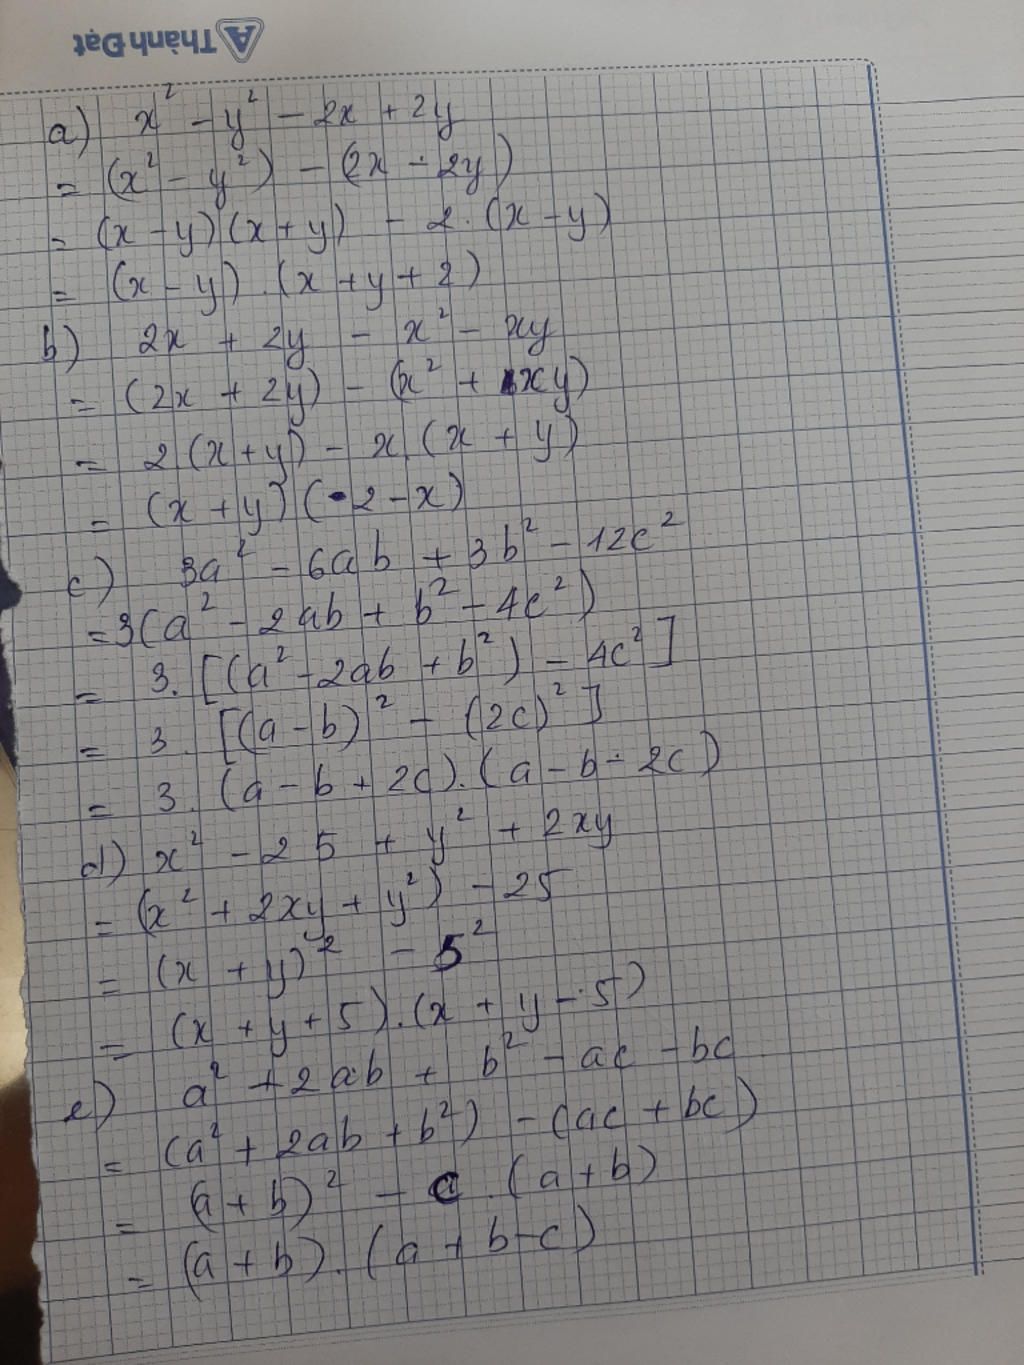 Thành Đạt
a) x² - y² - 2x + 2y
= (x² - y²) - (2x - 2y)
= (x - y)(x + y) - 2.(x - y)
= (x - y).(x + y + 2)
b) 2x + 2y - x² - xy
= (2x + 2y) - (x² + xy)
= 2(x + y) - x.(x + y)
= (x + y)(-2 - x)
c) 3a² - 6ab + 3b² - 12c²
= 3(a² - 2ab + b² - 4c²)
= 3.[(a² - 2ab + b²) - 4c²]
= 3.[(a - b)² - (2c)²]
= 3.(a - b + 2c).(a - b - 2c)
d) x² - 25 + y² + 2xy
= (x² + 2xy + y²) - 25
= (x + y)² - 5²
= (x + y + 5).(x + y - 5)
e) a² + 2ab + b² - ac - bc
= (a² + 2ab + b²) - (ac + bc)
= (a + b)² - c.(a + b)
= (a + b).(a + b - c)